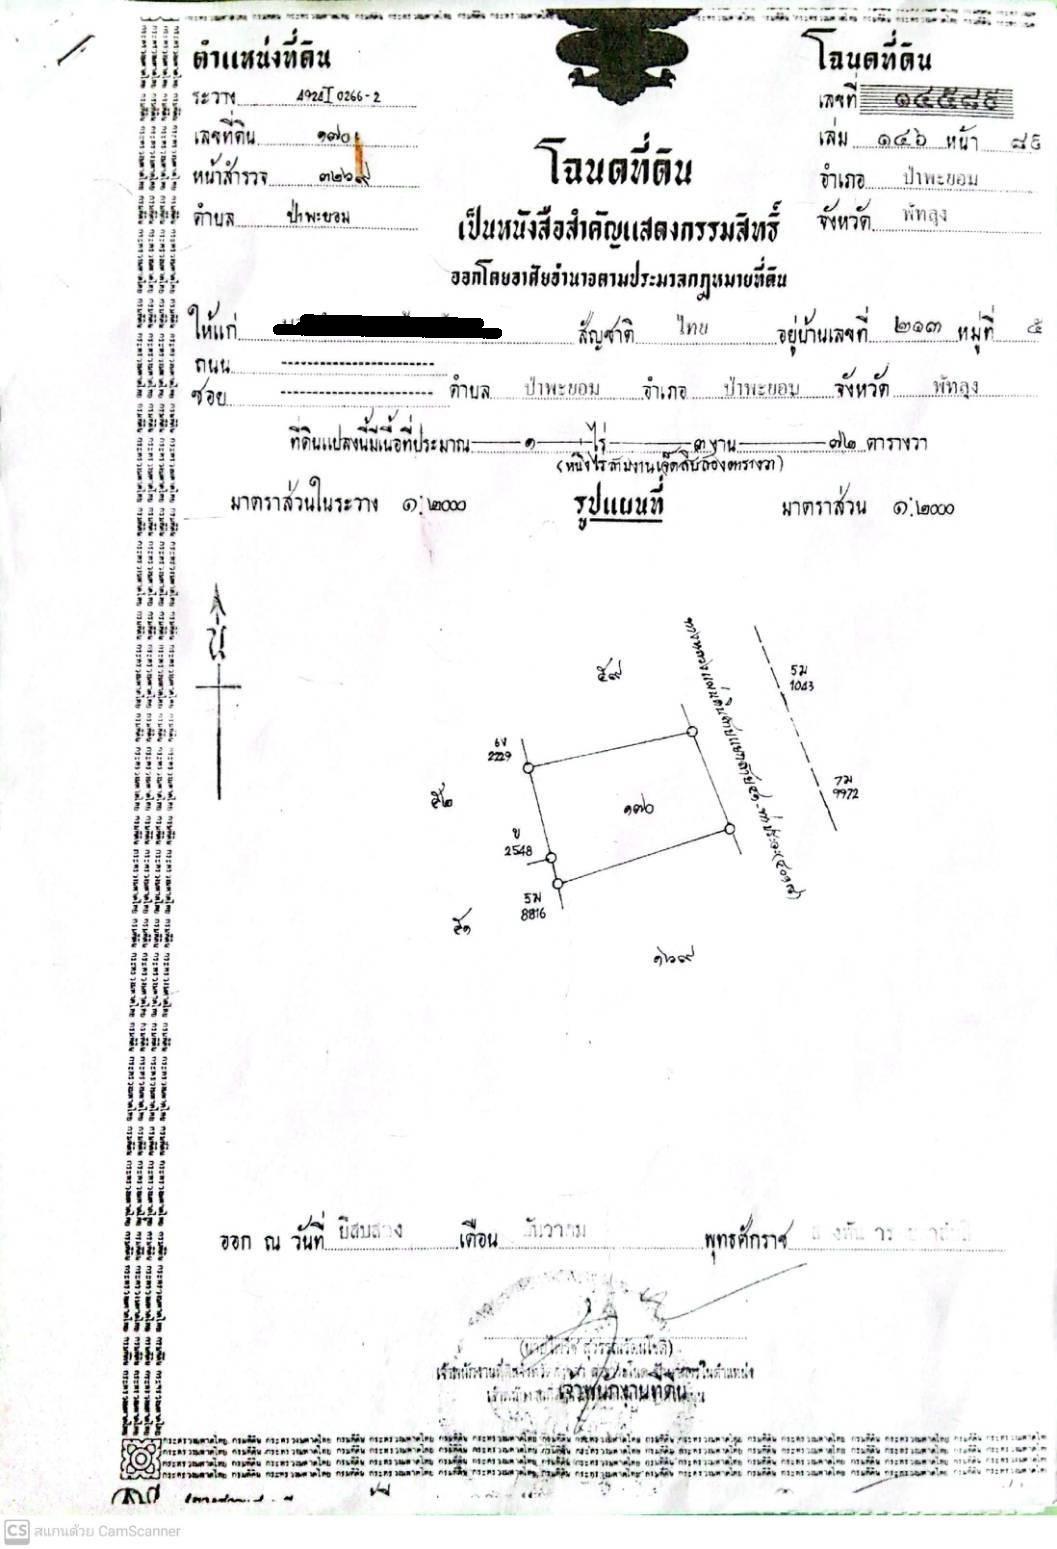 ตำแหน่งที่ดิน
ระวาง 4924 I 0266-2
เลขที่ดิน ๑๗๐
หน้าสำรวจ ๓๒๖๙
ตำบล ป่าพะยอม
โฉนดที่ดิน
เลขที่ ๑๔๕๘๙
เล่ม ๑๔๖ หน้า ๘๙
อำเภอ ป่าพะยอม
จังหวัด พัทลุง
โฉนดที่ดิน
เป็นหนังสือสำคัญแสดงกรรมสิทธิ์
ออกโดยอาศัยอำนาจตามประมวลกฎหมายที่ดิน
ให้แก่ สัญชาติ ไทย อยู่บ้านเลขที่ ๒๑๓ หมู่ที่ ๕
ถนน ----------------
ซอย ---------------- ตำบล ป่าพะยอม อำเภอ ป่าพะยอม จังหวัด พัทลุง
ที่ดินแปลงนี้มีเนื้อที่ประมาณ ๑ ไร่ ๓ งาน ๗๒ ตารางวา
(หนึ่งไร่สามงานเจ็ดสิบสองตารางวา)
มาตราส่วนในระวาง ๑:๒๐๐๐ รูปแผนที่ มาตราส่วน ๑:๒๐๐๐
น
5ม
1043
2229
7ม
9972
๕๒
๑๗๐
ข
2548
5ม
8816
๕๑
๑๖๙
ออก ณ วันที่ ยี่สิบสอง เดือน ธันวาคม พุทธศักราช
เจ้าพนักงานที่ดิน
กระทรวงมหาดไทย กรมที่ดิน
CS สแกนด้วย CamScanner